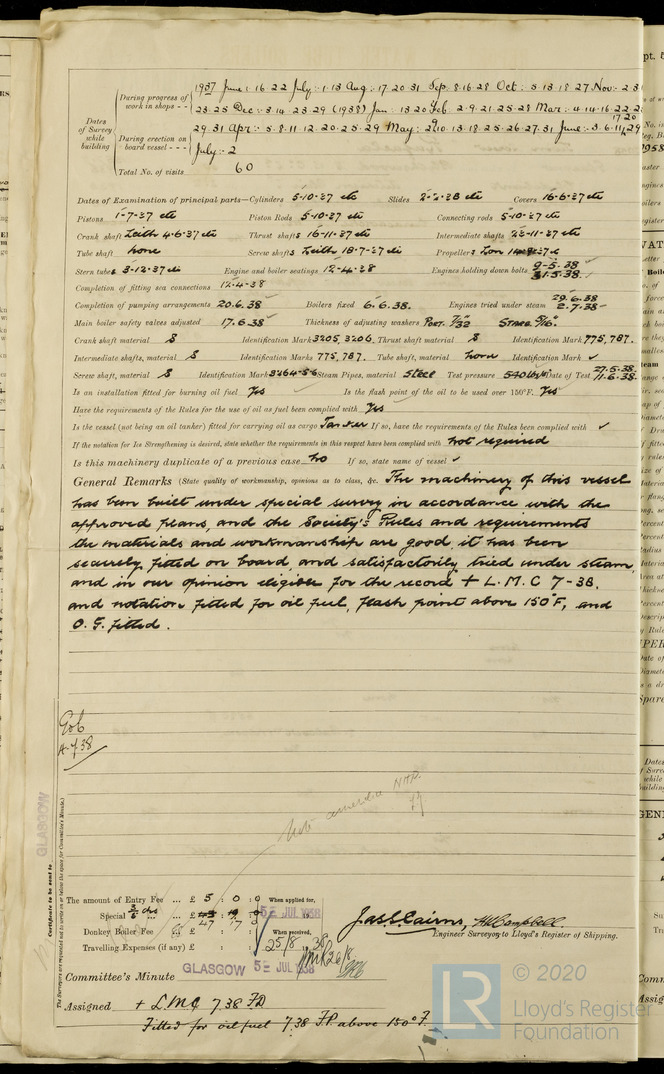 During progress of work in shops - - 1937 June: 16 22 July: 1-13 Aug: 17 20 31 Sep: 8.16.28 Oct: 5 13 18 27 Nov: 2 3
23.25 Dec: 3.14 23.29 (1938) Jan: 13 20 Feb 2.9.21.25.28 Mar: 4.14.16.22.2
17 20
Dates of Survey while building
During erection on board vessel - - - 29.31 Apr: 5.8.11 12.20.25.29 May: 10.13.18.25.26.27.31 June: 3.6.11 29
July: 2
Total No. of visits 60
Dates of Examination of principal parts—Cylinders 5-10-37 etc Slides 2-2-38 etc Covers 16-6-37 etc
Pistons 1-7-37 etc Piston Rods 5-10-37 etc Connecting rods 5-10-37 etc
Crank shaft Leith 4-6-37 etc Thrust shafts 16-11-37 etc Intermediate shafts 23-11-37 etc
Tube shaft none Screw shafts Leith 18-7-37 etc Propellers Lon
Stern tubes 3-12-37 etc Engine and boiler seatings 12-4-38 Engines holding down bolts 9-5-38
31-5-38
Completion of fitting sea connections 12-4-38
Completion of pumping arrangements 20.6.38 Boilers fixed 6.6.38. Engines tried under steam 29.6.38
2.7.38
Main boiler safety valves adjusted 17.6.38 Thickness of adjusting washers PORT. 7/32 STARB. 5/16.
Crank shaft material S Identification Mark 3205, 3206. Thrust shaft material S Identification Mark 775, 787.
Intermediate shafts, material S Identification Marks 775, 787. Tube shaft, material none Identification Mark ✓
Screw shaft, material S Identification Mark 3264-5-6 Steam Pipes, material Steel Test pressure 540 lbs Date of Test 27.5.38
11.6.38
Is an installation fitted for burning oil fuel Yes Is the flash point of the oil to be used over 150°F. Yes
Have the requirements of the Rules for the use of oil as fuel been complied with Yes
Is the vessel (not being an oil tanker) fitted for carrying oil as cargo Tanker If so, have the requirements of the Rules been complied with ✓
If the notation for Ice Strengthening is desired, state whether the requirements in this respect have been complied with not required
Is this machinery duplicate of a previous case No If so, state name of vessel ✓
General Remarks (State quality of workmanship, opinions as to class, &c. The machinery of this vessel
has been built under special survey in accordance with the
approved plans, and the Society's Rules and requirements
the materials and workmanship are good, it has been
securely fitted on board, and satisfactorily tried under steam,
and in our opinion eligible for the record + L.M.C 7-38.
and notation fitted for oil fuel, flash point above 150°F, and
O.G. fitted.
GLASGOW
Certificate to be sent to
(The Surveyors are requested not to write on or below the space for Committee's Minute.)
The amount of Entry Fee ... £ 5 : 0 : 0 When applied for,
Special ... ... £ 47 17 5 JUL 1938
Donkey Boiler Fee ... £ : : When received,
Travelling Expenses (if any) £ : : 25/8 38
Jas. S. Cairns, Campbell.
Engineer Surveyors to Lloyd's Register of Shipping.
Committee's Minute GLASGOW 5 JUL 1938
Assigned + L.M.C. 7.38 FD
Fitted for oil fuel 7.38 F.P. above 150°F.
LR
© 2020
Lloyd's Register
Foundation